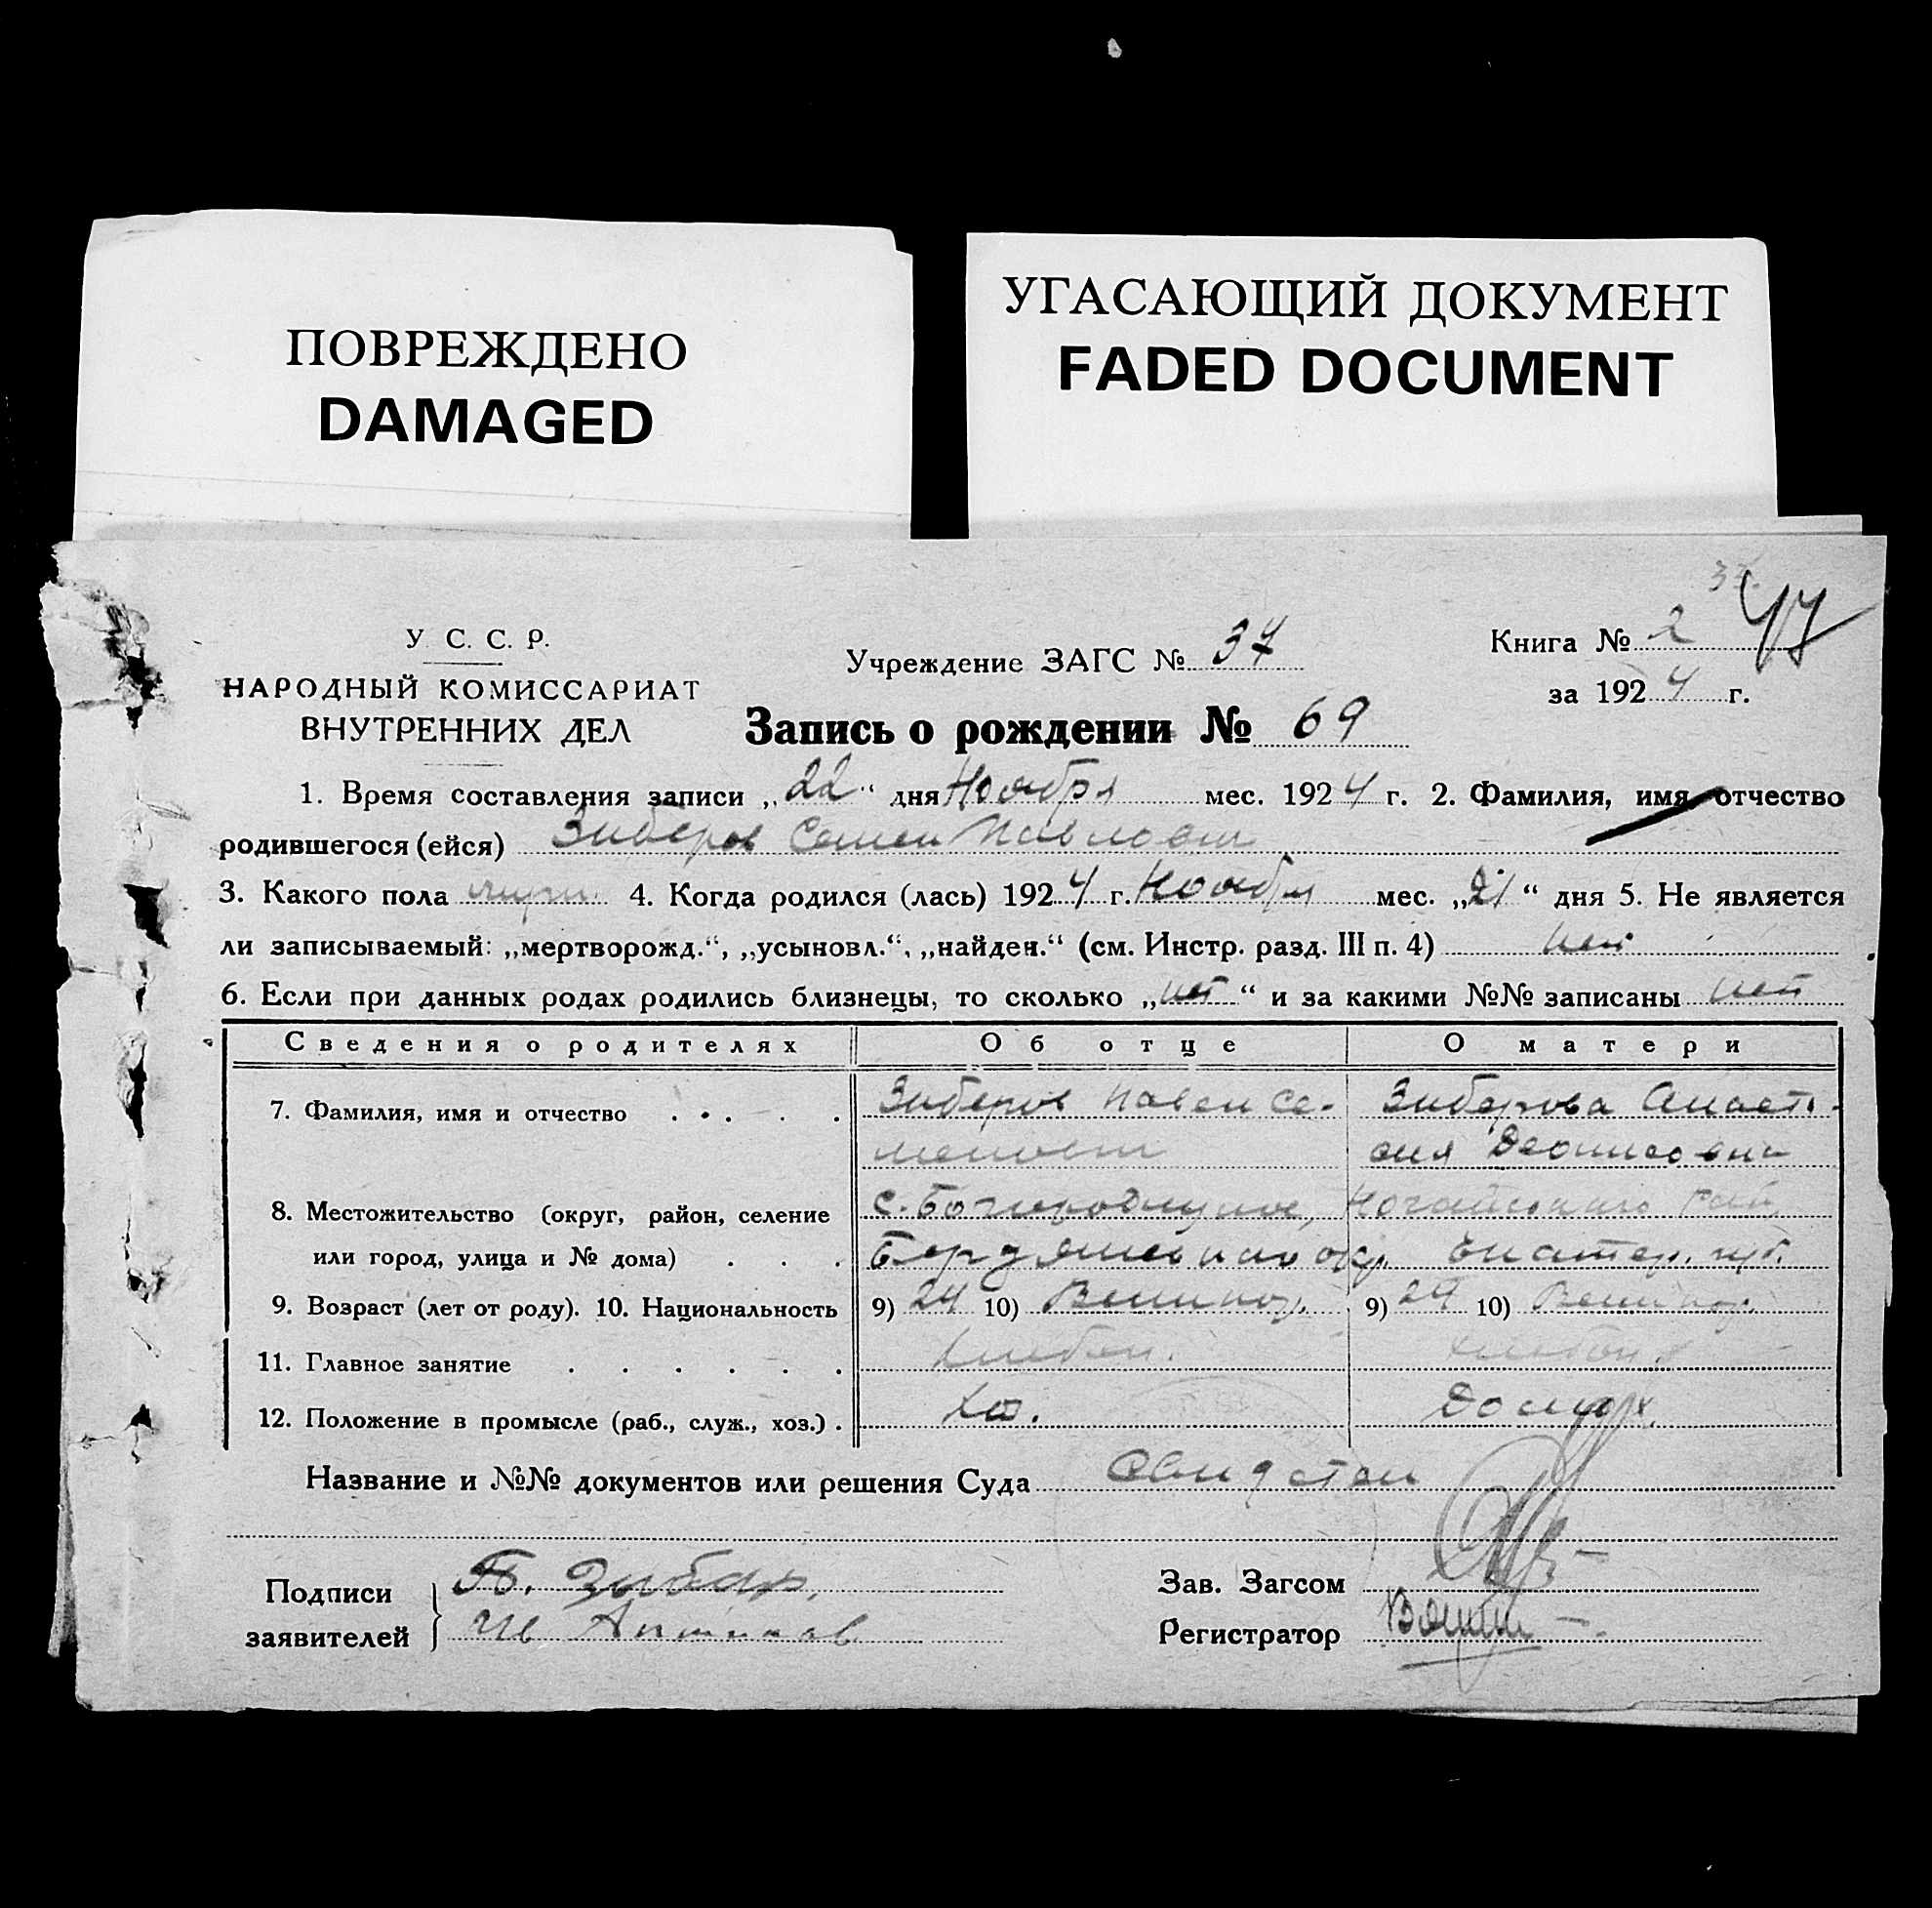 ПОВРЕЖДЕНО
DAMAGED
УГАСАЮЩИЙ ДОКУМЕНТ
FADED DOCUMENT
У С. С. Р.
НАРОДНЫЙ КОМИССАРИАТ
ВНУТРЕННИХ ДЕЛ
Учреждение ЗАГС № 37
Книга № 2
за 1924 г.
Запись о рождении № 69
1. Время составления записи „22“ дня Ноября мес. 1924 г. 2. Фамилия, имя отчество
родившегося (ейся) Зиберов Семен Павлович
3. Какого пола муж. 4. Когда родился (лась) 1924 г. Ноября мес. „21“ дня 5. Не является
ли записываемый: „мертворожд.“, „усыновл.“, „найден.“ (см. Инстр. разд. III п. 4) нет
6. Если при данных родах родились близнецы, то сколько „нет“ и за какими №№ записаны нет
Сведения о родителях Об отце О матери
7. Фамилия, имя и отчество . . . . . Зиберов Павел Се- Зиберова Анаста-
менович сия Денисовна
8. Местожительство (округ, район, селение с. Богородицкое, Ногайского рай
или город, улица и № дома) . . . Бердянского окр. Екатер. губ.
9. Возраст (лет от роду). 10. Национальность 9) 24 10) Великор. 9) 24 10) Великор.
11. Главное занятие . . . . . . хлебоп. хлебоп.
12. Положение в промысле (раб., служ., хоз.) . хоз. Домох.
Название и №№ документов или решения Суда
Подписи
заявителей
П. Зибер
Зав. Загсом
Регистратор